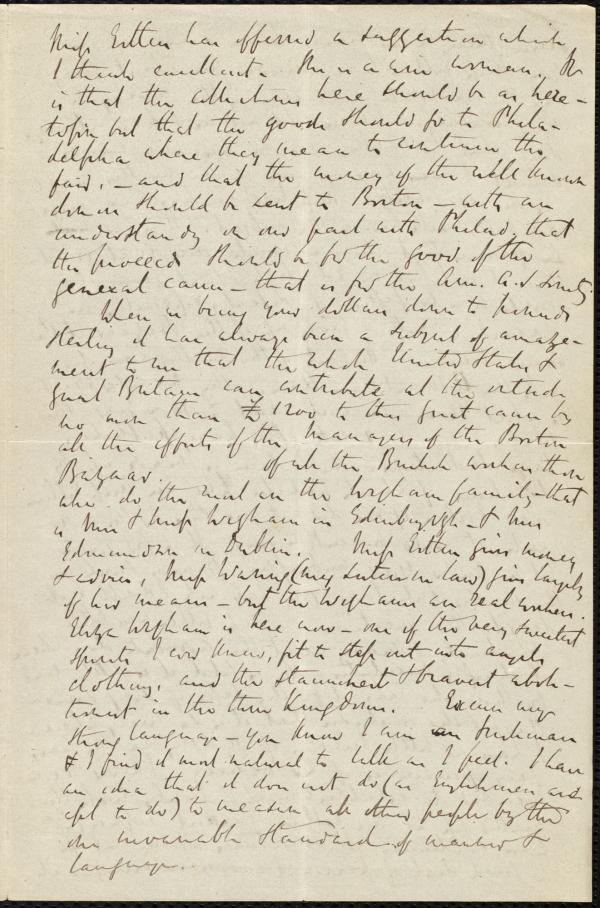 Miss Estlin has offered a suggestion which
I think excellent. She is a wise woman. It
is that the collections here should be as here-
tofore but that the goods should go to Phila-
delphia where they mean to continue the
fair, — and that the money of the well known
donors should be sent to Boston — with an
understandg on our part with Philad. that
the proceeds should be for the good of the
general cause — that is for the Am. A.S. Society.
When we bring your dollars down to pounds
sterling it has always been a subject of amaze-
ment to me that the whole United States &
great Britain can contribute at the outside
no more than £1200 to this great cause by
all the efforts of the Managers of the Boston
Bazaar. Of all the British workers those
who do the most are the Wigham family — that
is Mrs & Miss Wigham in Edinburgh — & Mrs
Edmundson in Dublin. Miss Estlin gives money
& advice, Miss Waring (my sister in law) gives largely
of her means — but the Wighams are real workers.
Eliza Wigham is here now — one of the very sweetest
spirits I ever knew, fit to step out into angels
clothing, and the staunchest & bravest aboli-
tionist in the three Kingdoms. Excuse my
strong language — you know I am an Irishman
& I find it most natural to talk as I feel. I have
an idea that it does not do (as Englishmen are
apt to do) to measure all other people by the
one invariable standard of manners &
language.